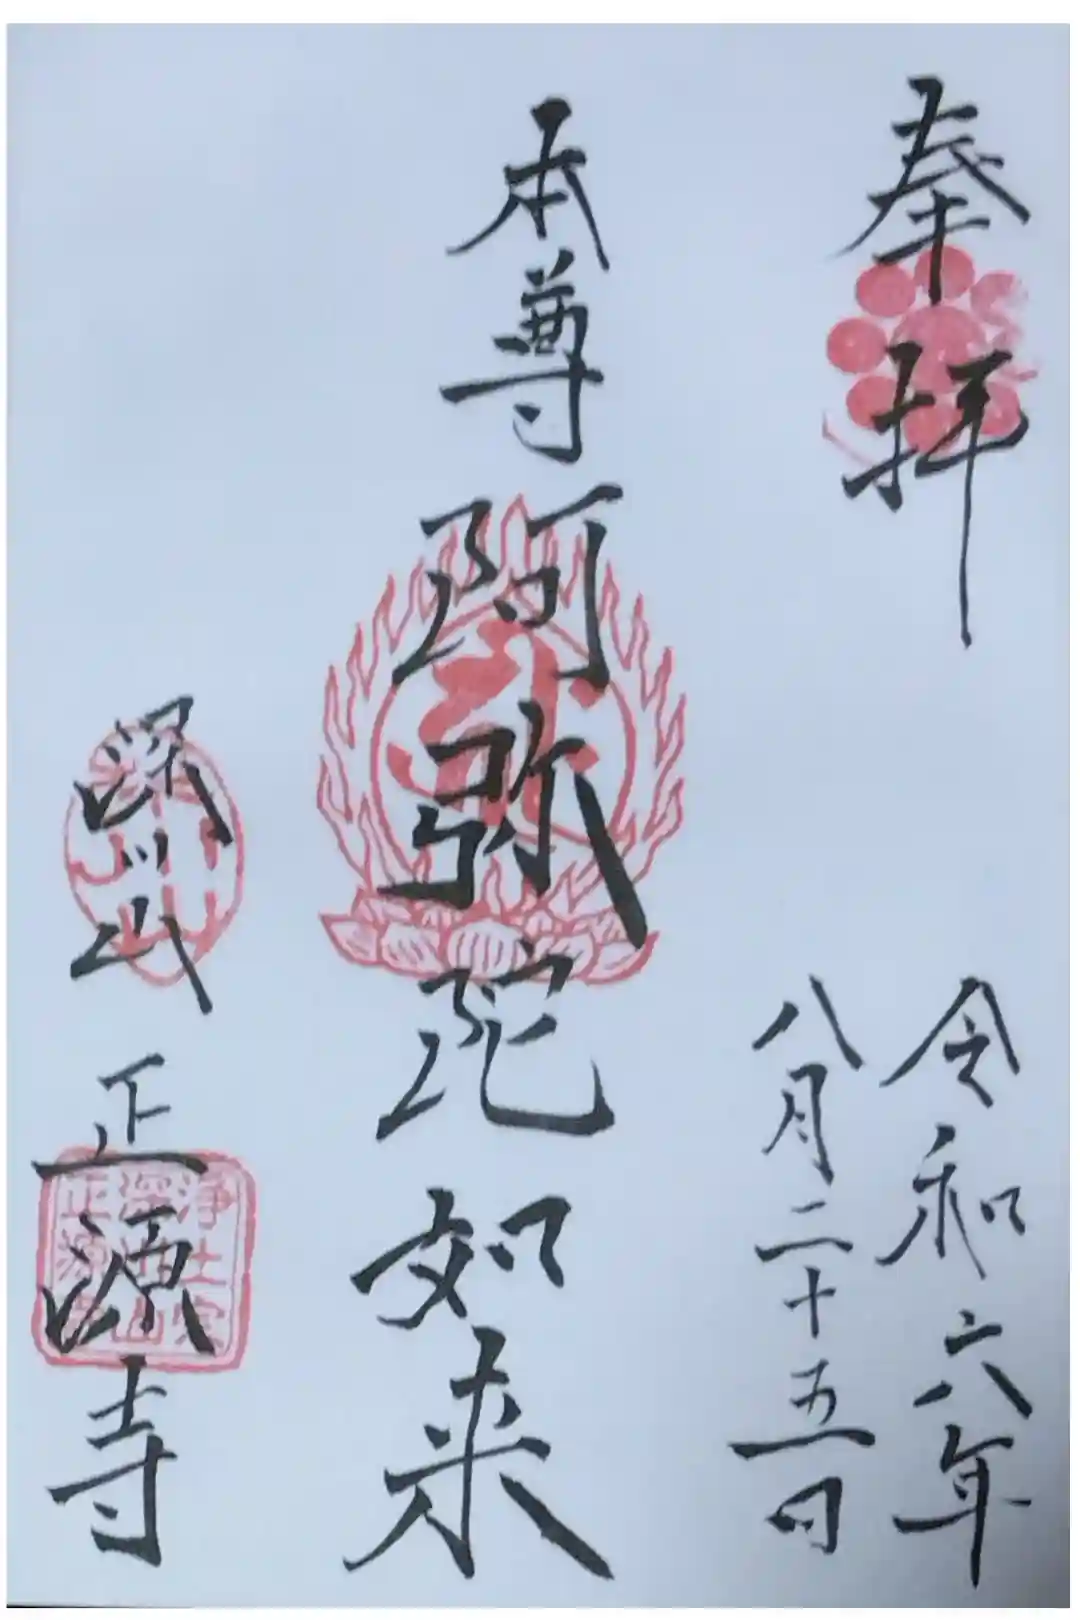 奉拝
令和六年
八月二十五日
本尊阿弥陀如来
深川山
正源寺
浄土宗
深川山
正源寺